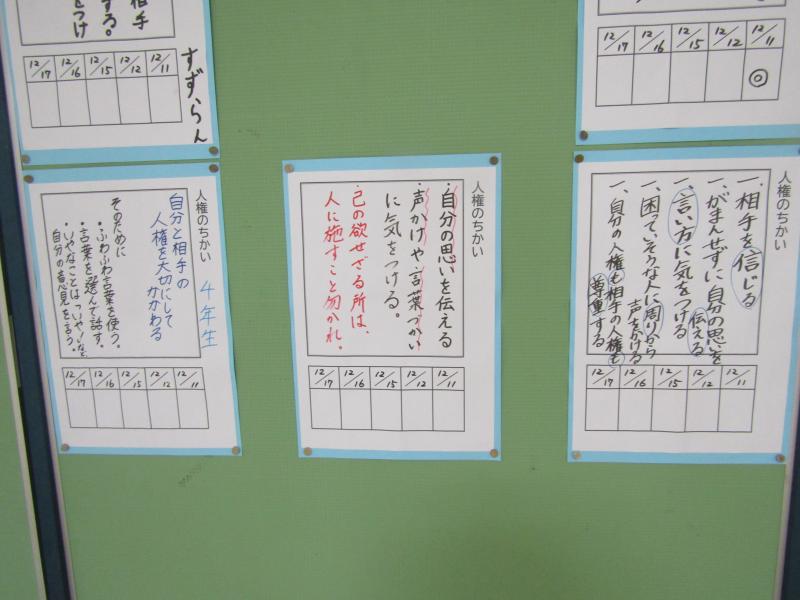 相手
する。
をつけ
12/17 12/16 12/15 12/12 12/11
すずらん
12/17 12/16 12/15 12/12 12/11
◎
人権のちかい
4年生
自分と相手の
人権を大切にして
かかわる
そのために
・ふわふわ言葉を使う。
・言葉を選んで話す。
・いやなことは「いや」など、
自分の意見を言う。
12/17 12/16 12/15 12/12 12/11
人権のちかい
・自分の思いを伝える
・声かけや言葉づかい
に気をつける。
・己の欲せざる所は、
人に施すこと勿かれ。
12/17 12/16 12/15 12/12 12/11
人権のちかい
一、相手を信じる
一、がまんせずに自分の思いを
伝える
一、言い方に気をつける
一、困って、そうな人に周りから
声をかける
一、自分の人権も相手の人権も
尊重する
12/17 12/16 12/15 12/12 12/11